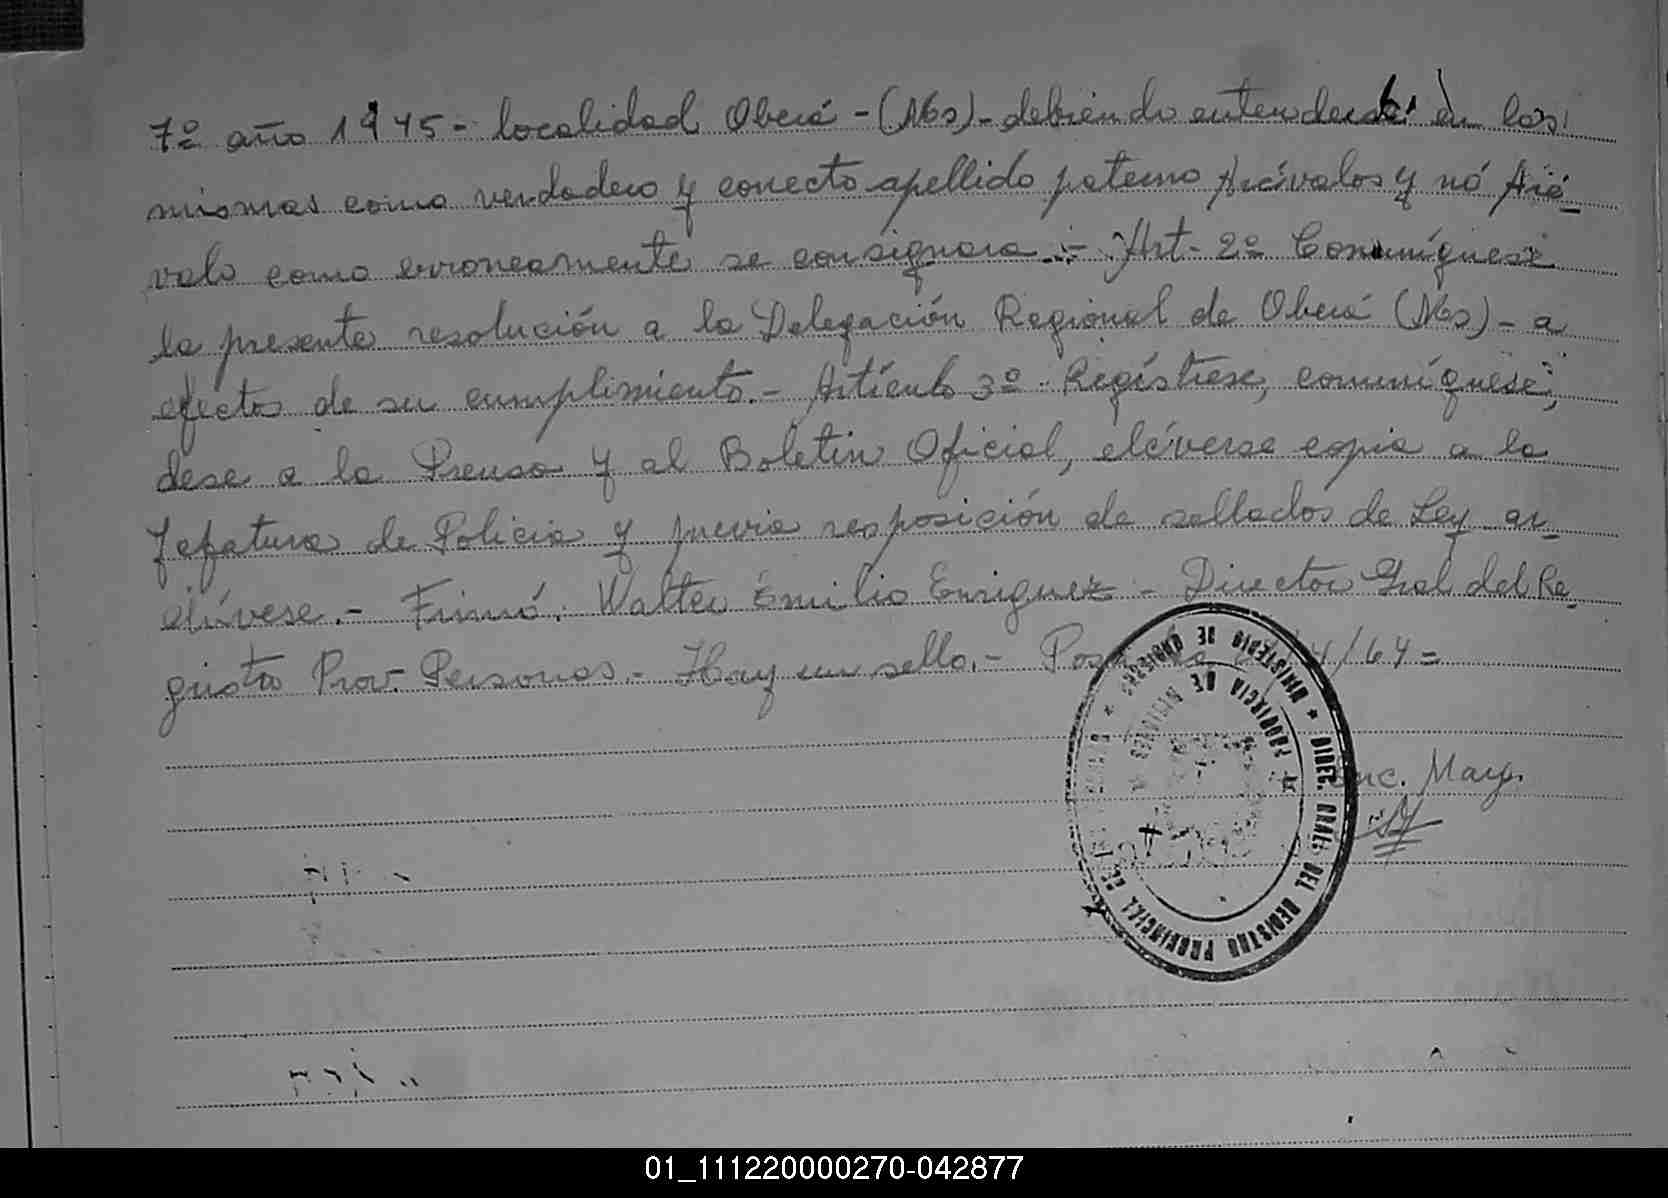 7º año 1945- localidad Oberá -(Mes)- debiendo entenderse en las
mismas como verdadero y correcto apellido paterno Arévalos y nó Aré_
valo como erroneamente se consignara.- Art- 2º Comuníquese
la presente resolución a la Delegación Regional de Oberá (Mes)- a
efectos de su cumplimiento.- Artículo 3º Regístrese, comuníquese,
dese a la Prensa y al Boletin Oficial, eléverse copia a la
Jefatura de Policia y previa resposición de sellados de Ley ar_
chívese.- Firmó: Walter Emilio Enriquez - Director Gral del Re_
gistro Prov. Personas.- Hay un sello.- /64=
Enc. Marg.
MINISTERIO DE GOBIERNO * DIREC. GRAL. DEL REGISTRO PROVINCIAL DE LAS PERSONAS *
PROVINCIA DE MISIONES
01_111220000270-042877